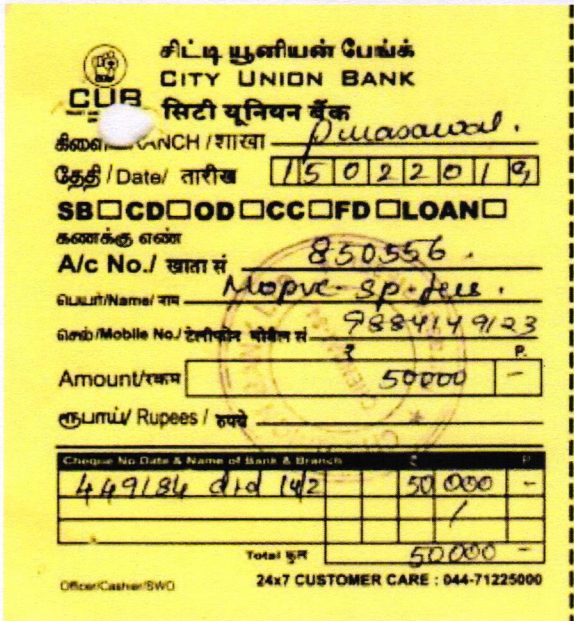 சிட்டி யூனியன் பேங்க்
CITY UNION BANK
CUB सिटी यूनियन बैंक
கிளை/BRANCH / शाखा
தேதி / Date/ तारीख 15022019
SB☐CD☐OD☐CC☐FD☐LOAN☐
கணக்கு எண்
A/c No./ खाता सं 850556
பெயர்/Name/ नाम
செல்/Mobile No./ टेलीफोन मोबैल सं 9884149123
₹ P.
Amount/रकम 50000 -
ரூபாய்/ Rupees / रुपये
Cheque No Date & Name of Bank & Branch ₹ P.
449184 dtd 14/2 50 000 -
Total कुल 50000 -
Officer/Cashier/SWO 24x7 CUSTOMER CARE : 044-71225000